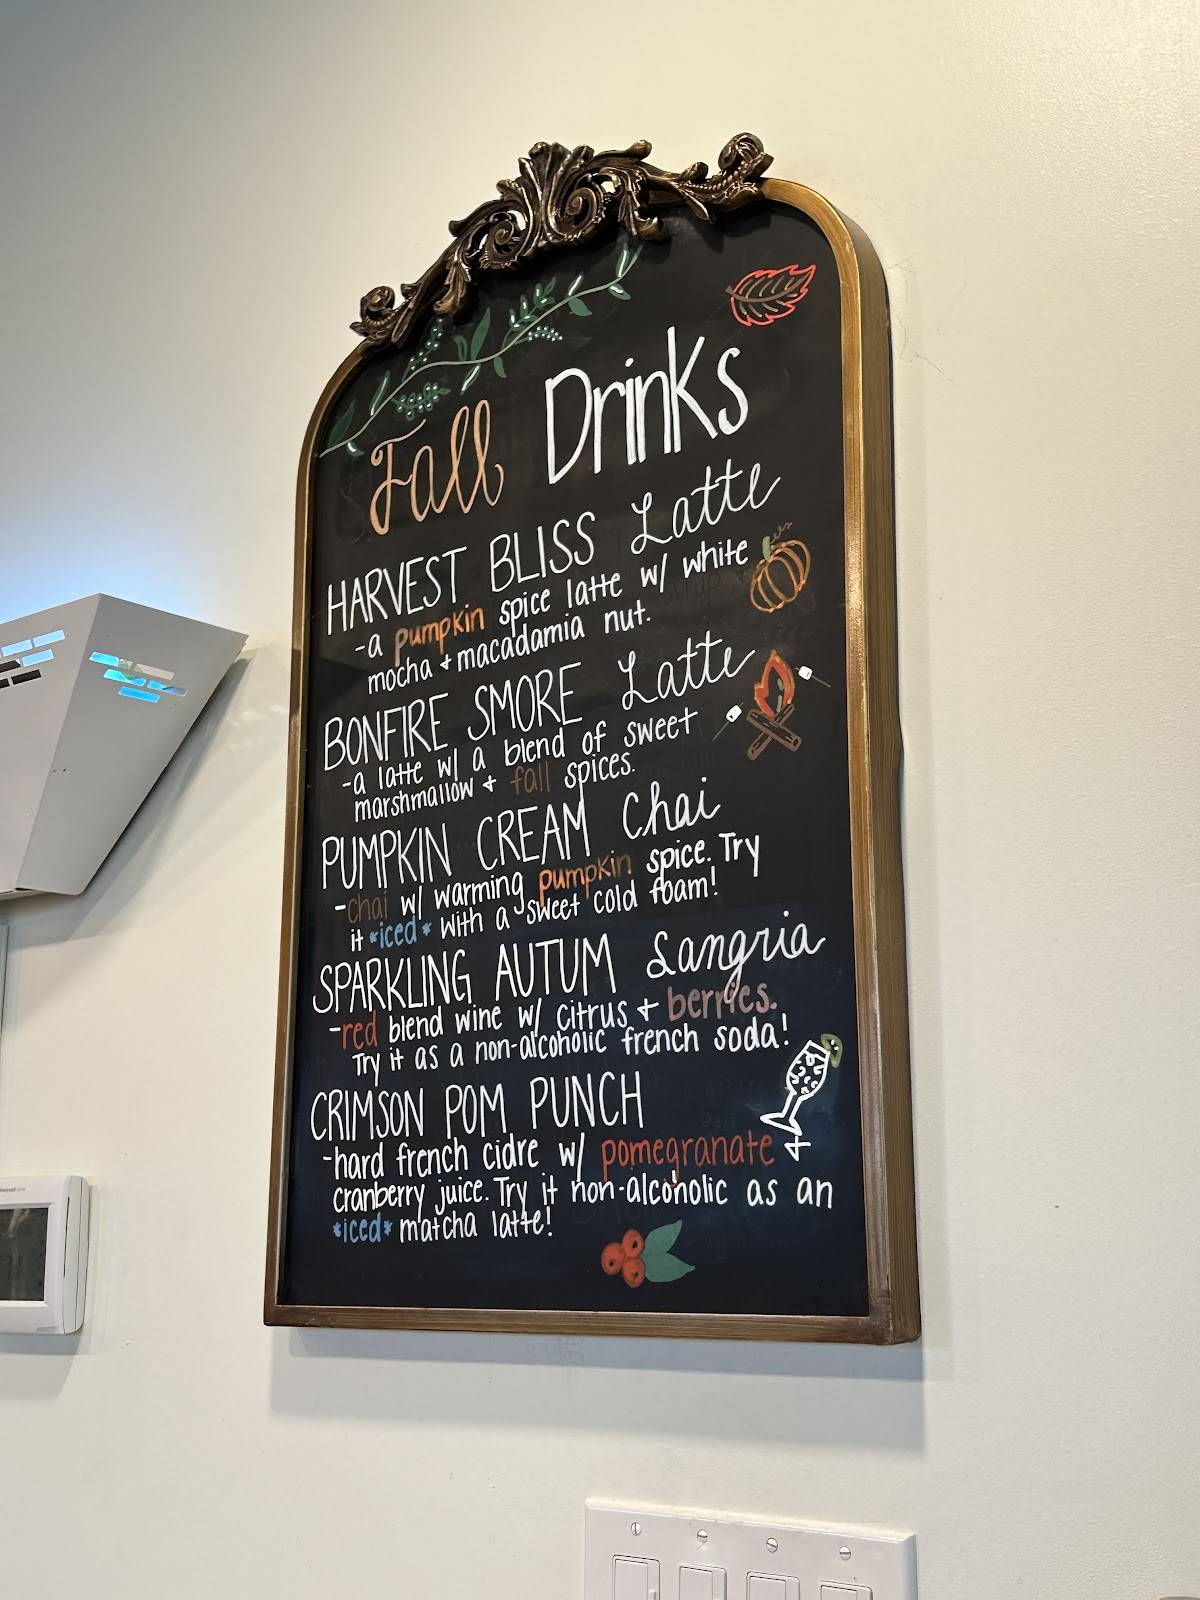 Fall Drinks
HARVEST BLISS Latte
-a pumpkin spice latte w/ white
mocha + macadamia nut.
BONFIRE SMORE Latte
-a latte w/ a blend of sweet
marshmallow + fall spices.
PUMPKIN CREAM Chai
-chai w/ warming pumpkin spice. Try
it *iced* with a sweet cold foam!
SPARKLING AUTUM Sangria
-red blend wine w/ citrus + berries.
Try it as a non-alcoholic french soda!
CRIMSON POM PUNCH
-hard french cidre w/ pomegranate +
cranberry juice. Try it non-alcoholic as an
*iced* matcha latte!